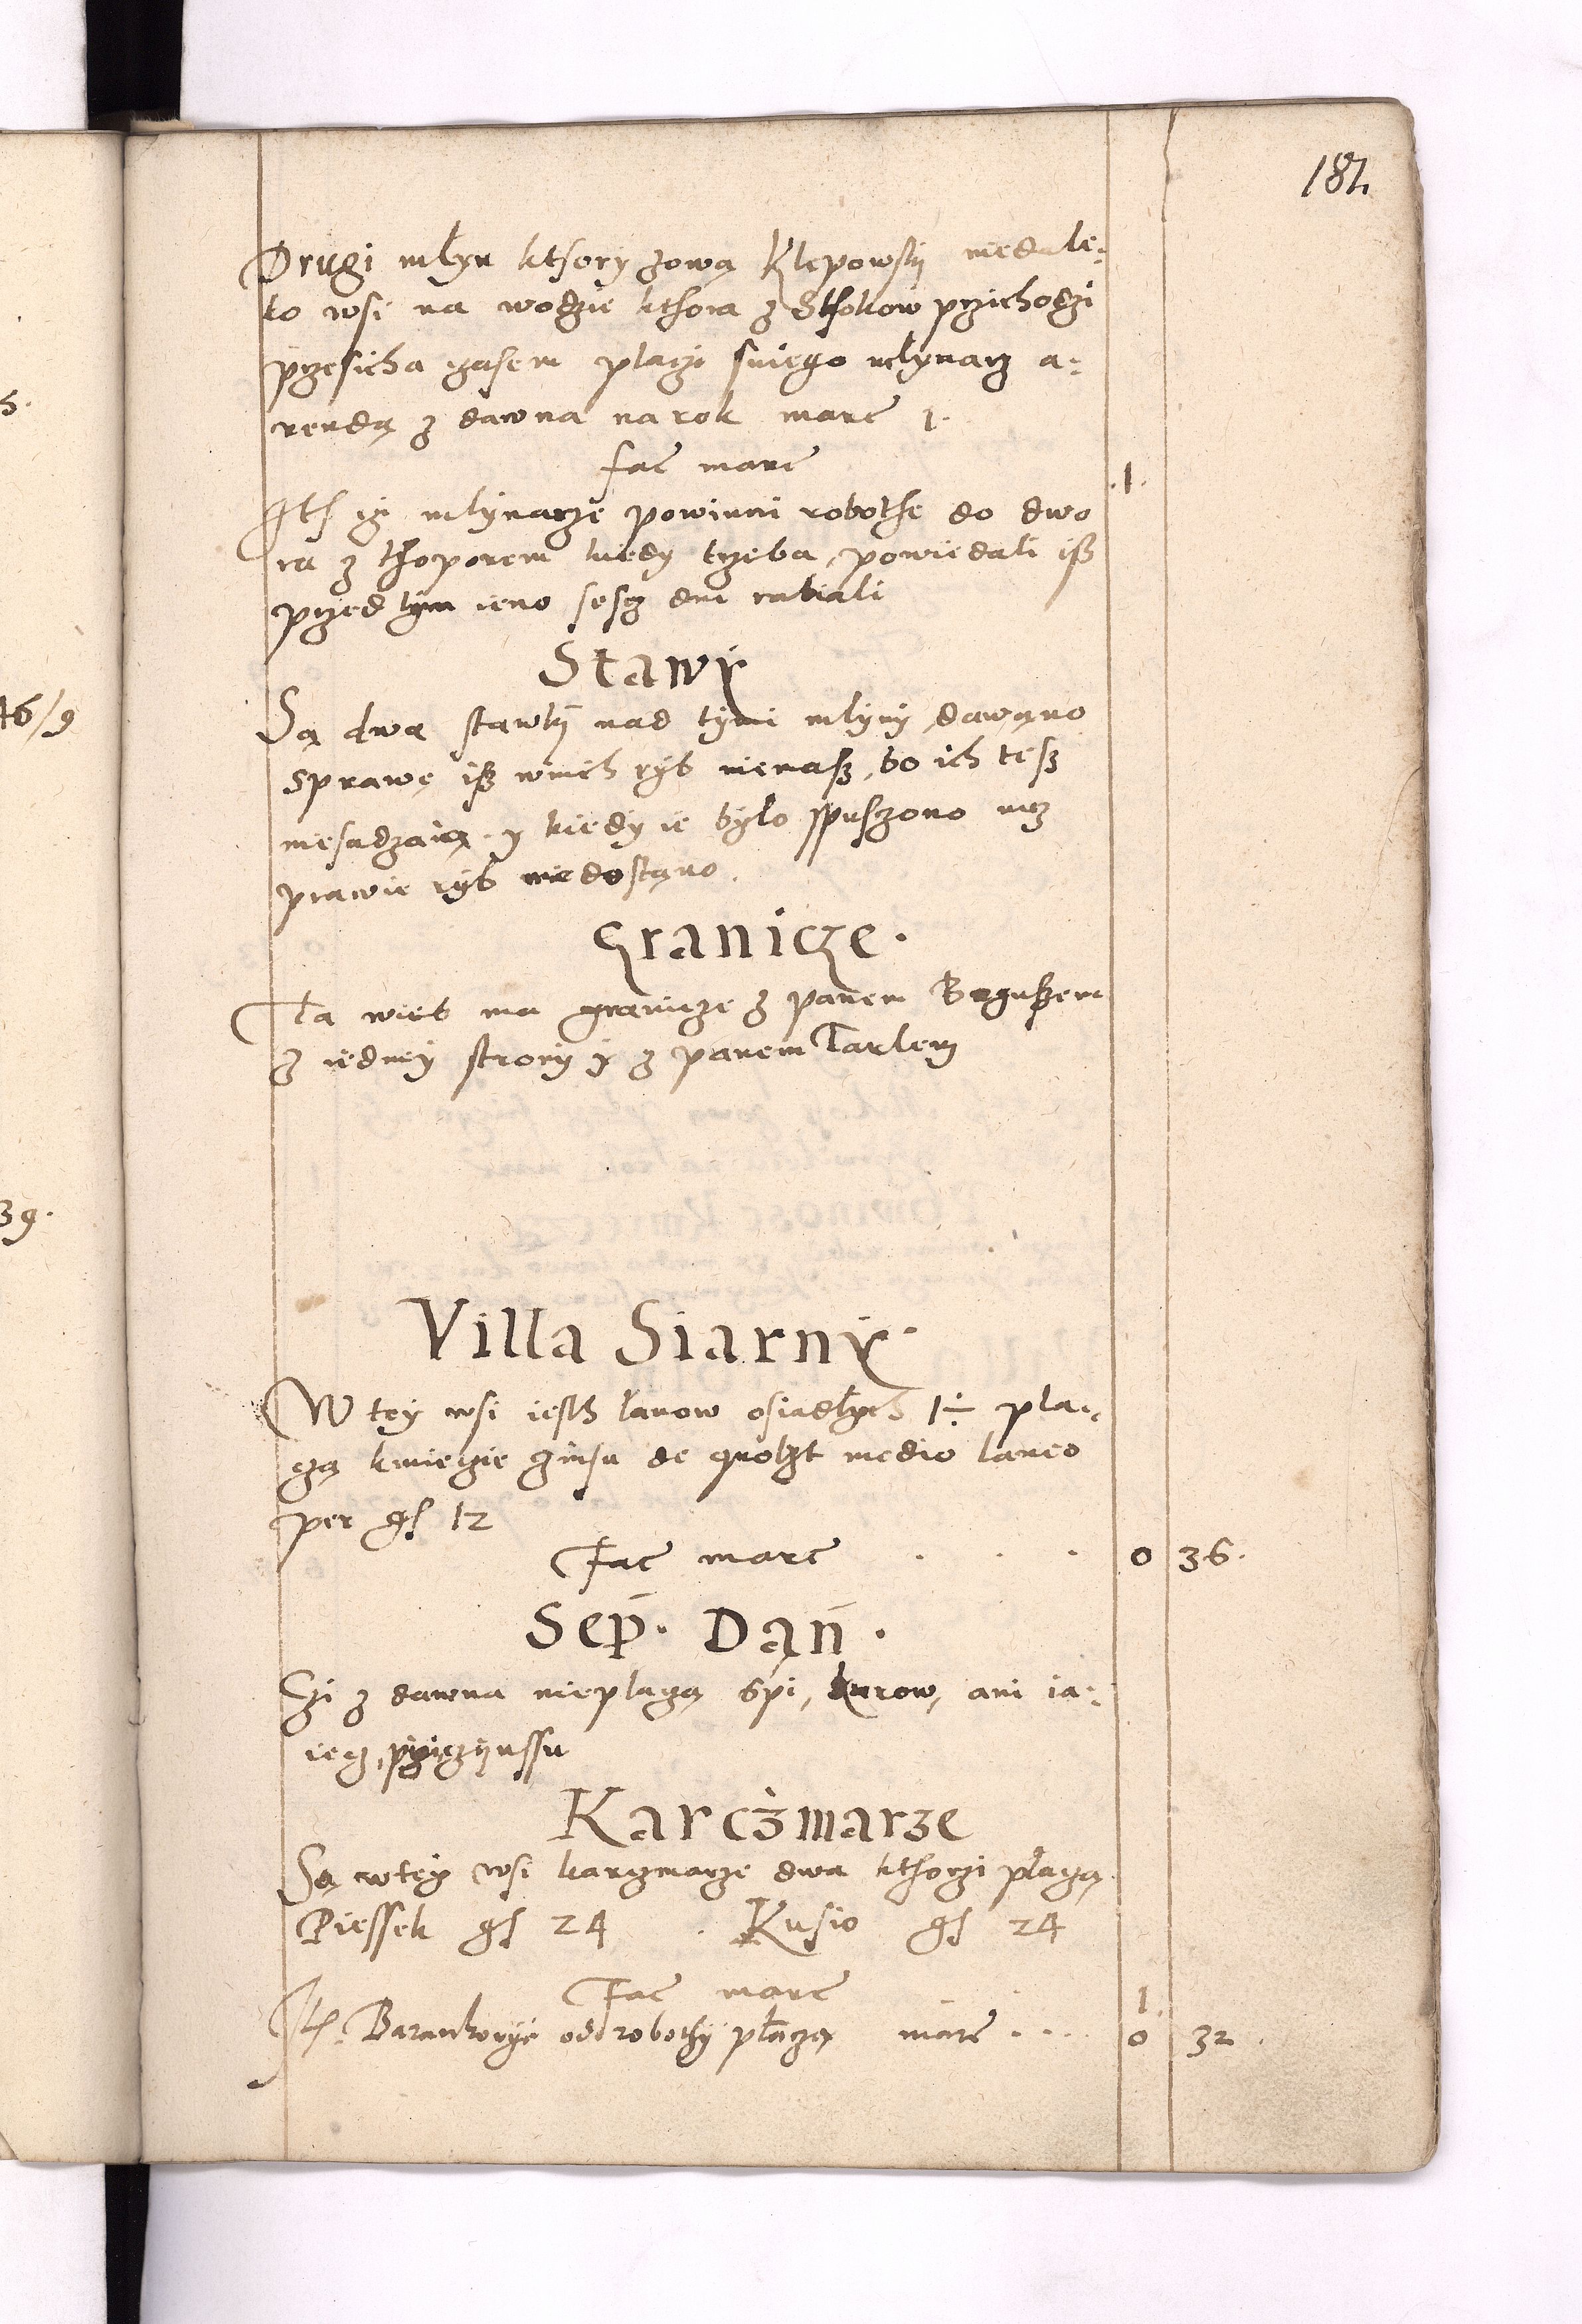 187.
Drugi mlyn kthory zową Klepowsky niedale:
ko wsi na wodzie kthora z Sthokow przichodzi
przesicha czasem placzi sniego mlynarz a:
rendą z dawna na rok marc 1.
fac marc .1.
Ith ciz mlynarze powinni robothe do dwo
ra z thoporem kiedy trzeba, powiedali iß
przed tym ieno sescz dni rabiali
Stawy
Są dwa stawky nad tymi mlyny dawano
sprawę iß wnich ryb niemaß, bo ich teß
niesadzaią. y kiedy ie bylo spusczono nicz
prawie ryb niedostano.
Granicze.
Ta wies ma granicze z panem Bogußem
z iedney strony y z panem Tarlem
Villa Siarny.
W tey wsi iesth łanow osiadłych 1÷ pla:
czą kmiecie czinsu de quolzt medio laneo
per gs 12
Fac marc . . . 0 36.
Sep. Dan.
Czi z dawna nieplaczą spi, kurow, ani ia:
iecz, czynssu
Karcżmarze
Są wtey wsi karczmarze dwa kthorzi płaczą
Piessek gs 24 . Kusio gs 24
Fac marc 1.
Ith. Barankowye od robothy płaczą marc .... 0 32.
46/9
39.